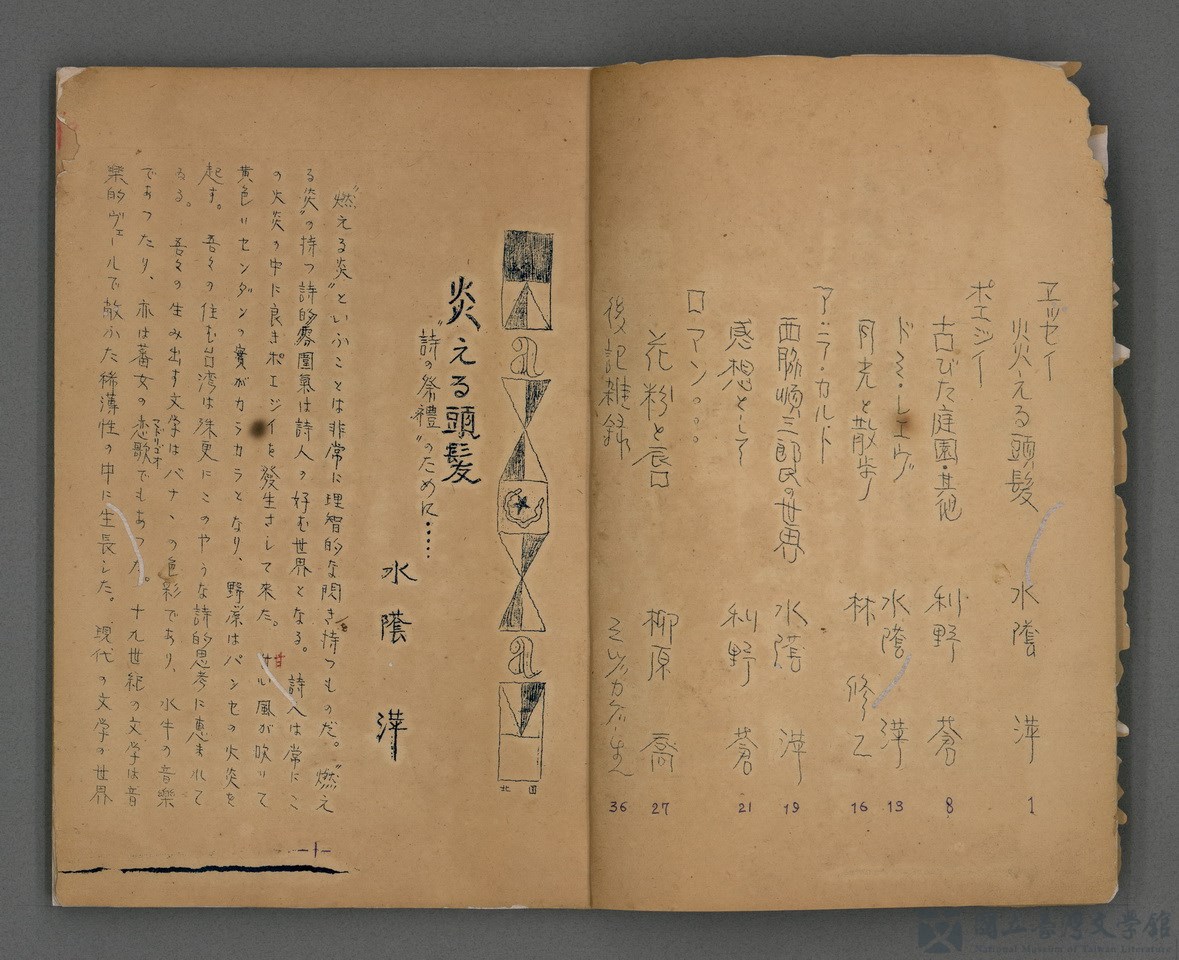 エッセイ
炎える頭髪 水蔭 萍 1
ポエジイ
古びた庭園・其他 利野 蒼 8
ドミ・レエヴ 水蔭 萍 13
月光と散歩 林 修二 16
ア・ラ・カルト
西脇順三郎氏の世界 水蔭 萍 19
感想として 利野 蒼 21
ロマン。。。
花粉と唇 柳原 喬 27
後記雑録 36
炎える頭髪
〝詩の祭禮〟のために……
水蔭 萍
北 国
〝燃える炎〟といふことは非常に理智的な閃き持つものだ。〝燃え
る炎〟の持つ詩的雰圍氣は詩人の好む世界となる。詩人は常にこ
の火炎の中に良きポエジイを發生さして来た。甘い風が吹いて
黄色いセンダンの實がカラカラとなり、野原はパンセの火炎を
起す。 吾々の住む台湾は殊更にこのやうな詩的思考に恵まれて
ゐる。 吾々の生み出す文学はバナナの色彩であり、水牛の音楽
であつたり、亦は蕃女の恋歌でもあつた。十九世紀の文学は音
楽的ヴェールで蔽ふた稀薄性の中に生長した。現代の文学の世界
—1—
國立臺灣文學館
National Museum of Taiwan Literature